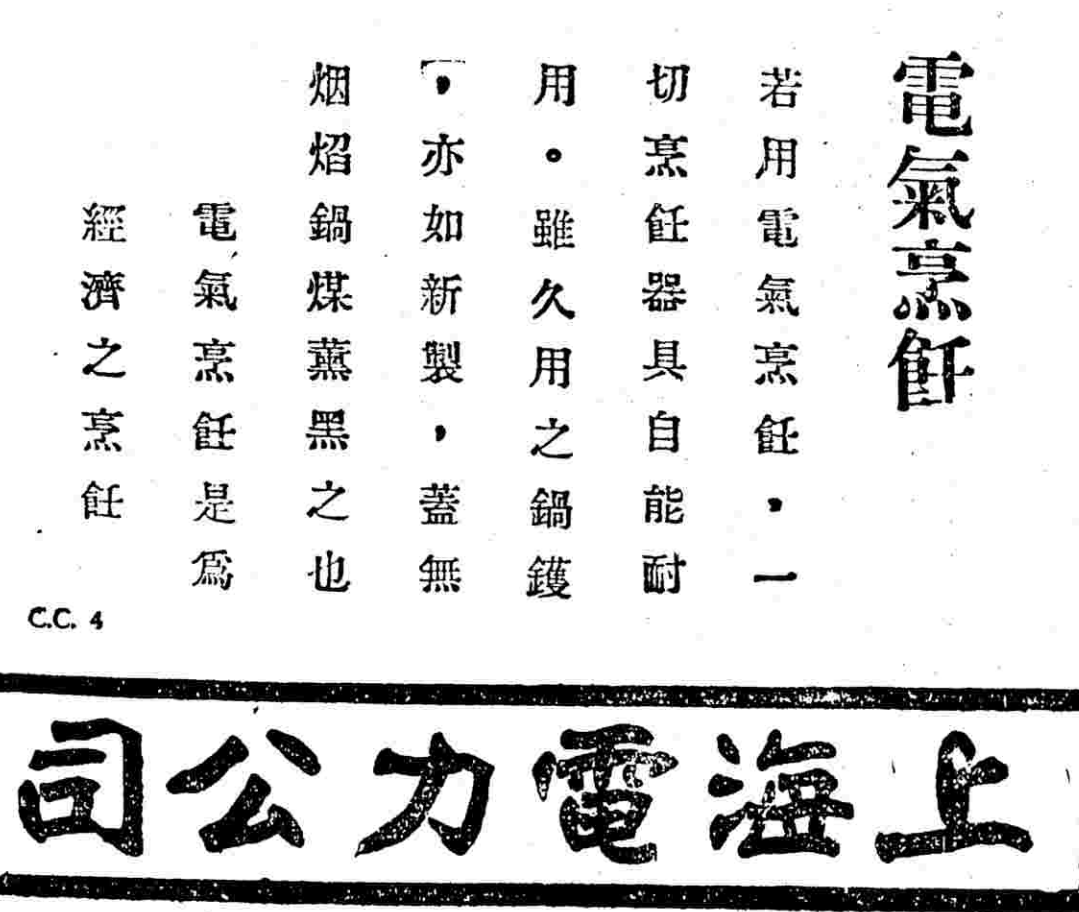 電氣烹飪
若用電氣烹飪，一
切烹飪器具自能耐
用。雖久用之鍋鑊
，亦如新製，蓋無
烟焰鍋煤薰黑之也
電氣烹飪是爲
經濟之烹飪
C.C. 4
上海電力公司